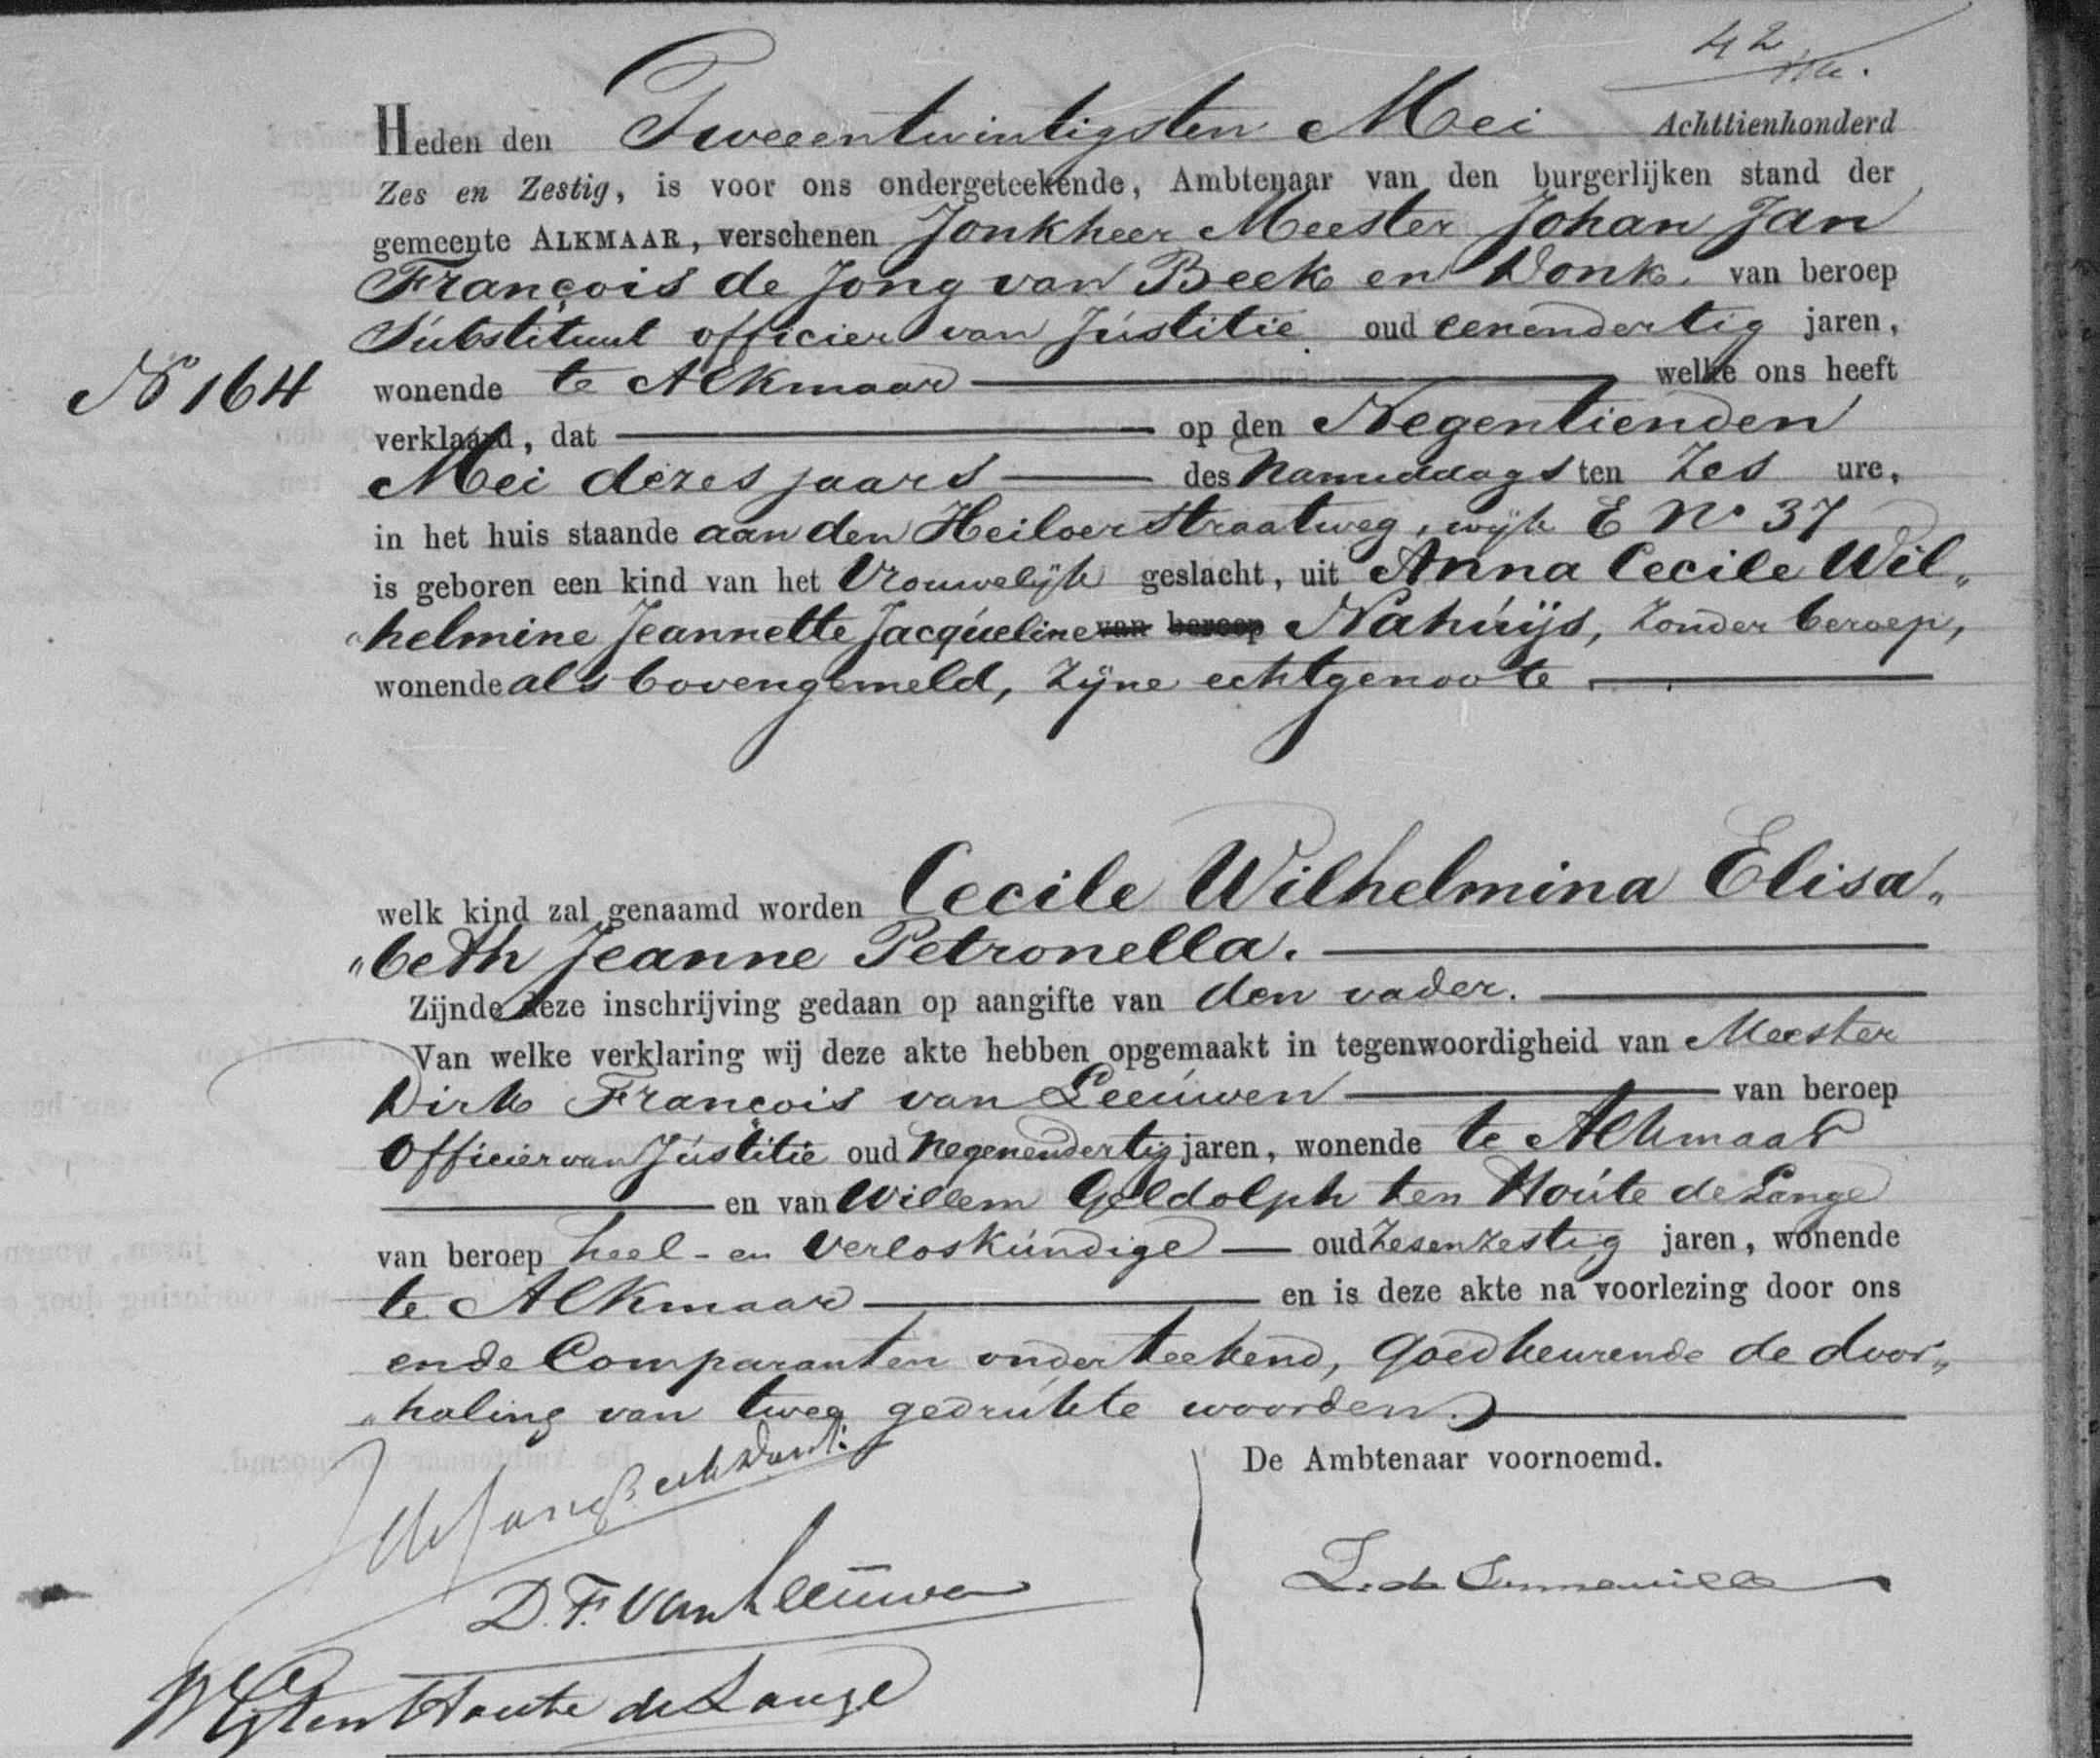 42
Heden den Tweeentwintigsten Mei Achttienhonderd
Zes en Zestig, is voor ons ondergeteekende, Ambtenaar van den burgerlijken stand der
gemeente ALKMAAR, verschenen Jonkheer Meester Johan Jan
François de Jong van Beek en Donk. van beroep
Substituut officier van Justitie. oud eenendertig jaren,
No 164
wonende te Alkmaar welke ons heeft
verklaard, dat op den Negentienden
Mei dezes jaars des Namiddags ten Zes ure,
in het huis staande aan den Heiloer Straatweg, wijk E No 37
is geboren een kind van het Vrouwelijk geslacht, uit Anna Cecile Wil„
„helmine Jeannette Jacqueline van beroep Nahuijs, Zonder beroep,
wonende als bovengemeld, Zijne echtgenoote
welk kind zal genaamd worden Cecile Wilhelmina Elisa„
„beth Jeanne Petronella.
Zijnde deze inschrijving gedaan op aangifte van den vader.
Van welke verklaring wij deze akte hebben opgemaakt in tegenwoordigheid van Meester
Dirk François van Leeuwen van beroep
Officier van Justitie oud Negenendertig jaren, wonende te Alkmaar
en van Willem Geldolph ten Houte de Lange
van beroep heel- en Verloskundige oud Zesenzestig jaren, wonende
te Alkmaar en is deze akte na voorlezing door ons
en de Comparanten onderteekend, Goedkeurende de door„
„haling van twee gedrukte woorden.
De Ambtenaar voornoemd.
D. F. van Leeuwen
WG ten Houte de Lange